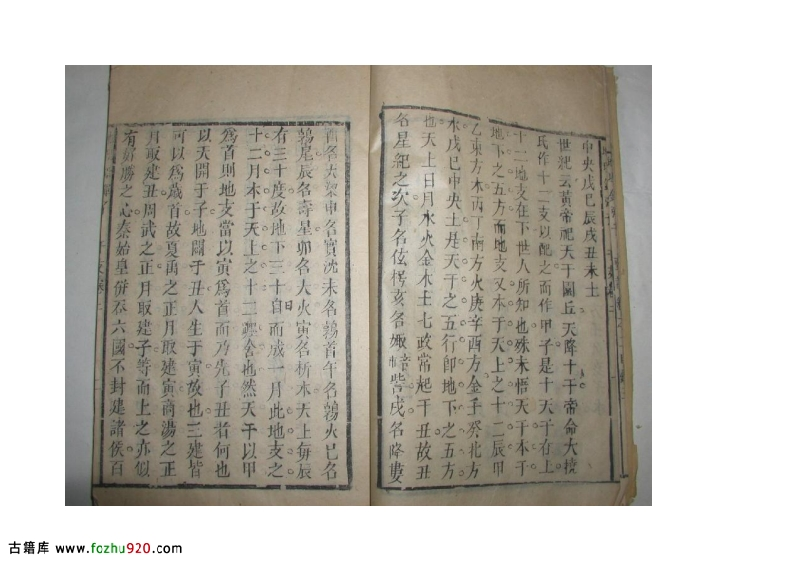 中央戊巳辰戌丑未土
世紀云黃帝祀天于圜丘天降十干帝命大撓
氏作十二支以配之而作甲子是十天干在上
十二地支在下世人所知也殊未悟天干本于
地下之五方而地支又本于天上之十二辰甲
乙東方木丙丁南方火庚辛酉方金壬癸北方
水戊巳中央土是天干之五行卽地下之五方
也天上日月水火金木土七政常起于丑故丑
名星紀之次子名玄枵亥名娵訾戌名降婁
酉名大梁申名實沈未名鶉首午名鶉火巳名
鶉尾辰名壽星卯名大火寅名析木天上每辰
有三十度故地下三十日而成一月此地支之
十二月本于天上之十二躔舍也然天干以甲
爲首則地支當以寅爲首而乃先子丑者何也
以天開于子地闢于丑人生于寅故也三建皆
可以爲歲首故夏禹之正月取建寅商湯之正
月取建丑周武之正月取建子等而上之亦似
有好勝之心秦始皇併吞六國不封建諸侯百
古籍库 www.fozhu920.com